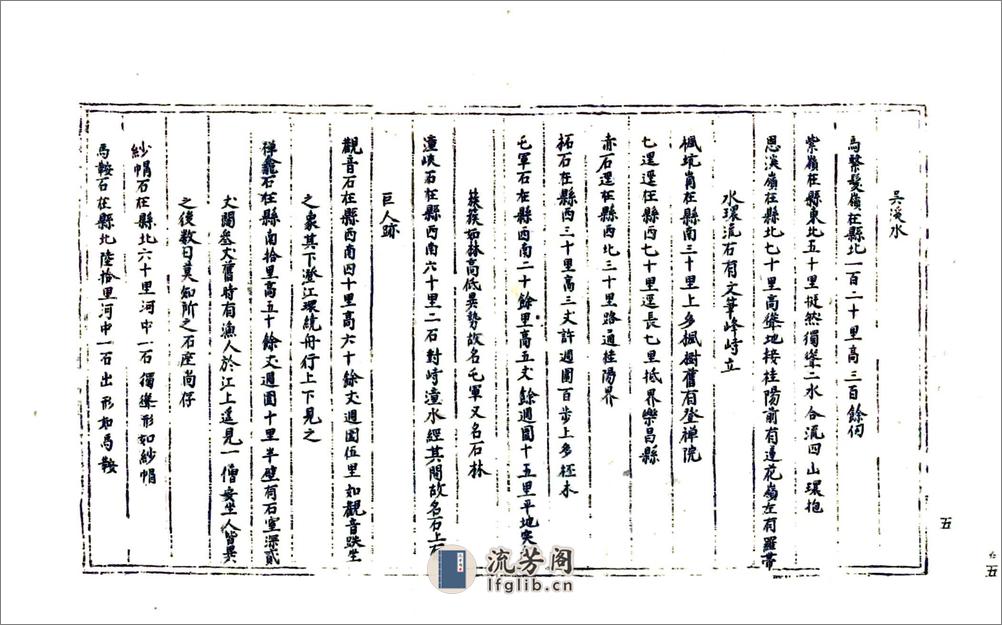 吳溪水
馬鬃髮嶺在縣北一百二十里高三百餘仞
紫嶺在縣東北五十里挺然獨聳二水合流四山環抱
思溪嶺在縣北七十里高聳地接桂陽前有蓮花嶺左有羅帶
水環流石有文筆峰峙立
楓坑崗在縣南三十里上多楓樹舊有登禪院
七逕逕在縣西七十里逕長七里抵界樂昌縣
赤石逕在縣西北三十里路通桂陽界
拓石在縣西三十里高三丈許週圍百步上多柽木
屯軍石在縣西南二十餘里高五丈餘週圍十五里平地突
簇簇如林高低異勢故名屯軍又名石林
潼峽石在縣西南六十里二石對峙潼水經其間故名石上有
巨人跡
觀音石在縣西南四十里高六十餘丈週圍伍里如觀音趺坐
之象其下瀅江環繞舟行上下見之
禅龕石在縣南拾里高五十餘丈週圍十里半壁有石室深貳
丈闊叁丈舊時有漁人於江上遙見一僧妄坐人皆異
之後数日莫知所之石座尚存
紗帽石在縣北六十里河中一石獨聳形如紗帽
馬鞍石在縣北陸拾里河中一石出形如馬鞍
五
五
流芳阁
lfglib.cn